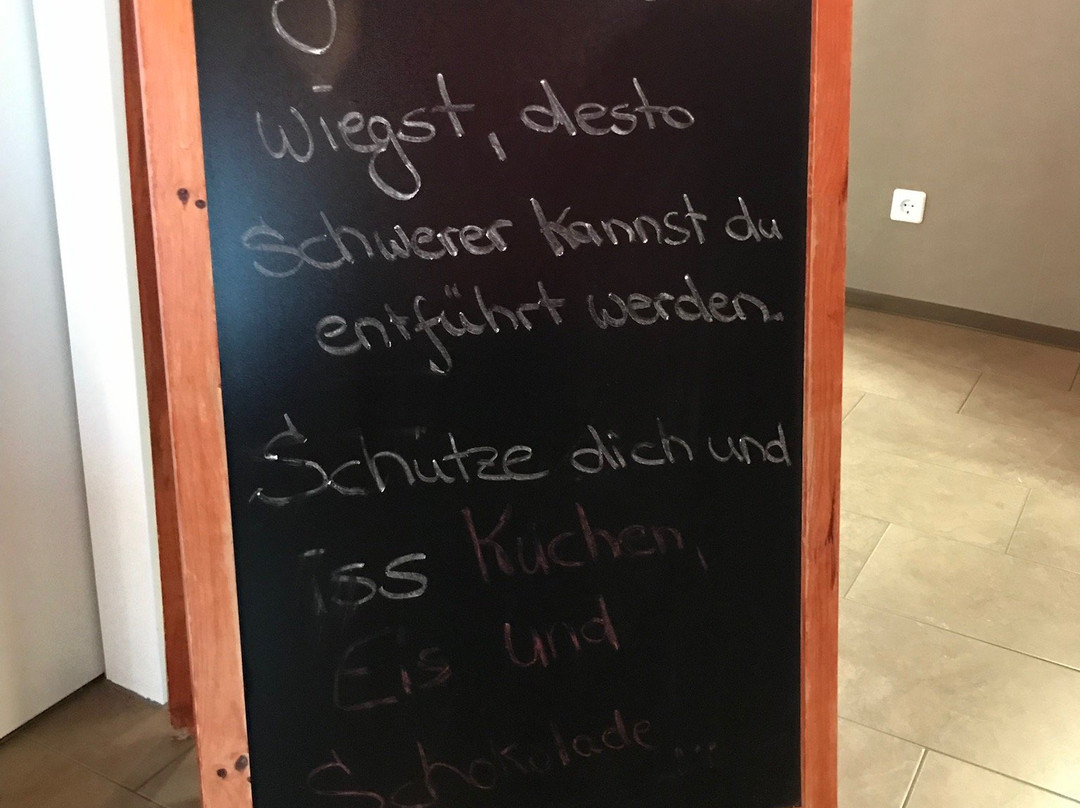 wiegst, desto
schwerer kannst du
entführt werden.
Schütze dich und
iss Kuchen,
Eis und
Schokolade...